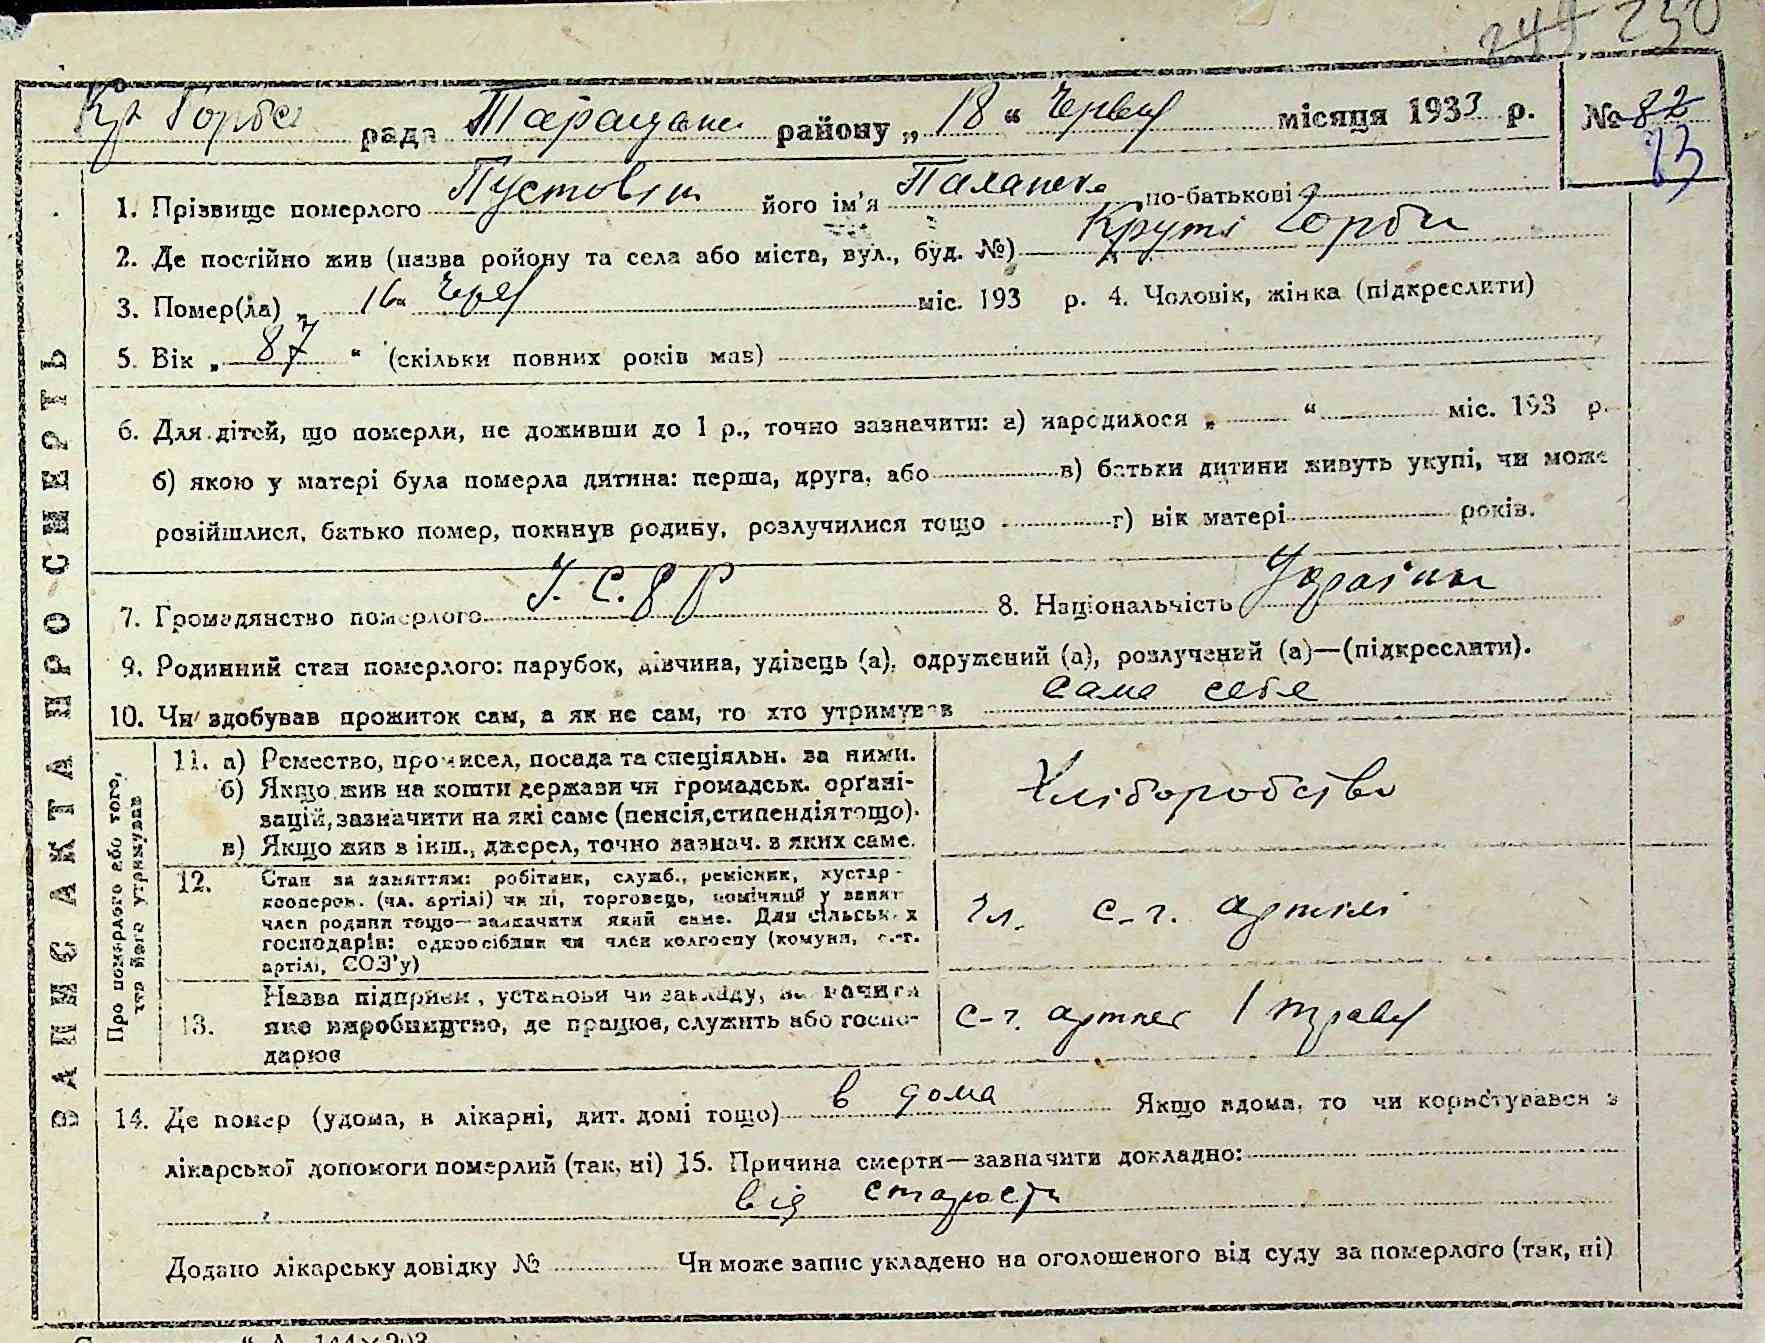 249 250
Кр Горби рада Таращан району „ 18 “ Червня місяця 1933 р. № 82
13
1. Прізвище померлого Пустовіт його ім'я Палажка по-батькові
2. Де постійно жив (назва ройону та села або міста, вул., буд. №) Круті Горби
3. Помер(ла) „ 16 “ Черв міс. 193 р. 4. Чоловік, жінка (підкреслити)
5. Вік „ 87 “ (скільки повних років мав)
6. Для дітей, що померли, не доживши до 1 р., точно зазначити: а) народилося „ “ міс. 193 р.
б) якою у матері була померла дитина: перша, друга, або в) батьки дитини живуть укупі, чи може
розійшлися, батько помер, покинув родину, розлучилися тощо г) вік матері років.
7. Громадянство померлого У. С. Р Р 8. Національність Україн
9. Родинний стан померлого: парубок, дівчина, удівець (а), одружений (а), розлучений (а)—(підкреслити).
10. Чи здобував прожиток сам, а як не сам, то хто утримував сама себе
ЗАПИС АКТА ПРО СМЕРТЬ
Про померлого або того, хто його утримував
11. а) Ремество, промисел, посада та спеціяльн. за ними.
б) Якщо жив на кошти держави чи громадськ. орґані-
зацій, зазначити на які саме (пенсія, стипендія тощо).
в) Якщо жив з інш., джерел, точно зазнач. з яких саме.
Хліборобство
12. Стан за заняттям: робітник, служб., ремісник, кустар-
кооперов. (чл. артілі) чи ні, торговець, помічний у занят
член родини тощо—зазначити який саме. Для сільськ. х
господарів: одноосібник чи член колгоспу (комуни, с.-г.
артілі, СОЗ'у)
Чл. с-г. артілі
13. Назва підприєм, установи чи закладу, зазначити
яке виробництво, де працює, служить або госпо-
дарює
с-г. артіль 1 травня
14. Де помер (удома, в лікарні, дит. домі тощо) в дома Якщо вдома, то чи користувався з
лікарської допомоги померлий (так, ні) 15. Причина смерти—зазначити докладно:
від старости
Додано лікарську довідку № Чи може запис укладено на оголошеного від суду за померлого (так, ні)